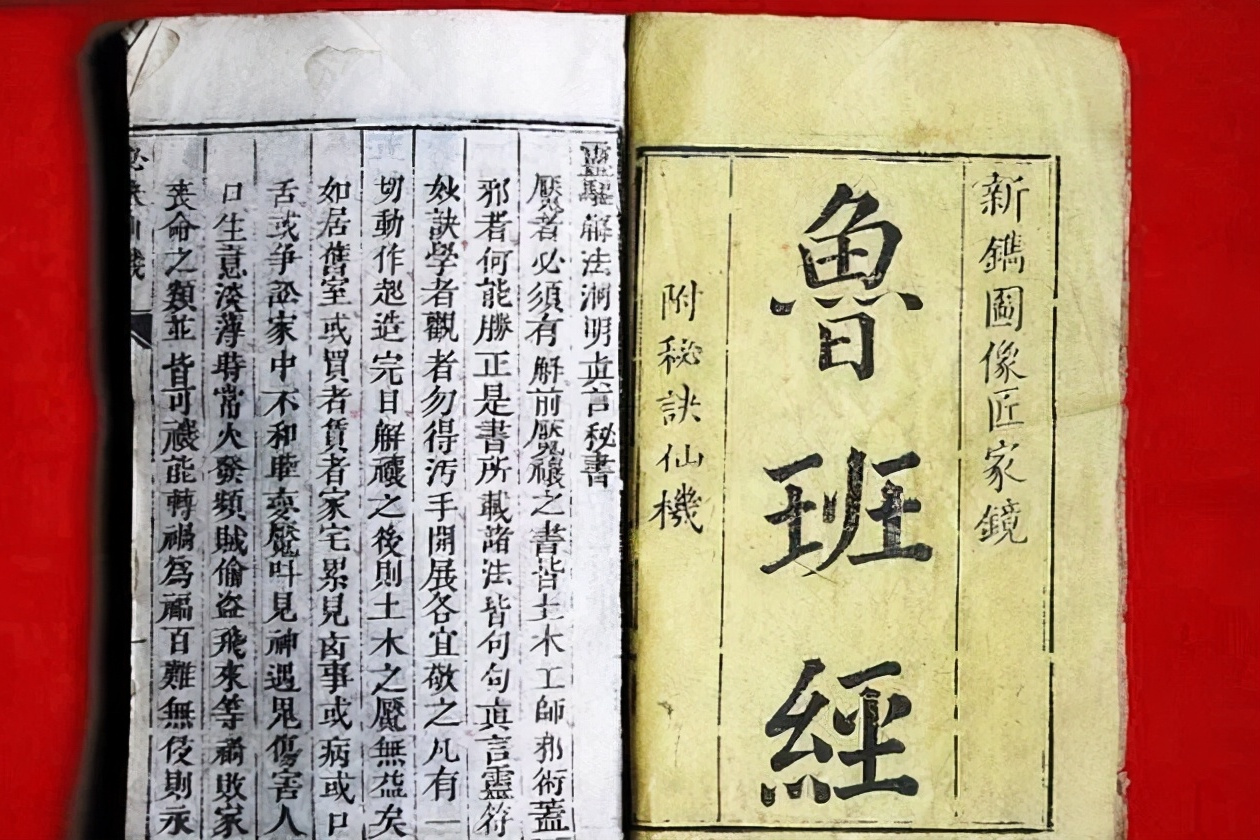 新鐫圖像匠家鏡
魯班經
附秘訣仙機
靈驅解法洞明眞言秘書
魘者必須有解前魘禳之書皆土木工師邪術蓋
邪者何能勝正是書所載諸法皆句句眞言靈符
妙訣學者觀者勿得污手開展各宜敬之凡有一
切動作起造完日解禳之後則土木之魘無益矣
如居舊室或買者賃者家宅累見凶事或病或口
舌或爭訟家中不和睡夢魘叫見神遇鬼傷害人
口生意淡薄時常火發頻賊偷盜飛來等禍敗家
喪命之類並皆可禳能轉禍爲福百難無侵則永